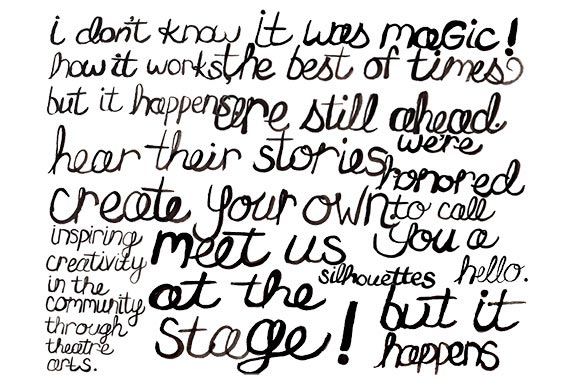 i don't know
how it works,
but it happens.
it was magic!
the best of times
are still ahead.
hear their stories
we're
honored
to call
you a
create your own
inspiring
creativity
in the
community
through
theatre
arts.
meet us
at the
stage!
silhouettes
hello.
but it
happens